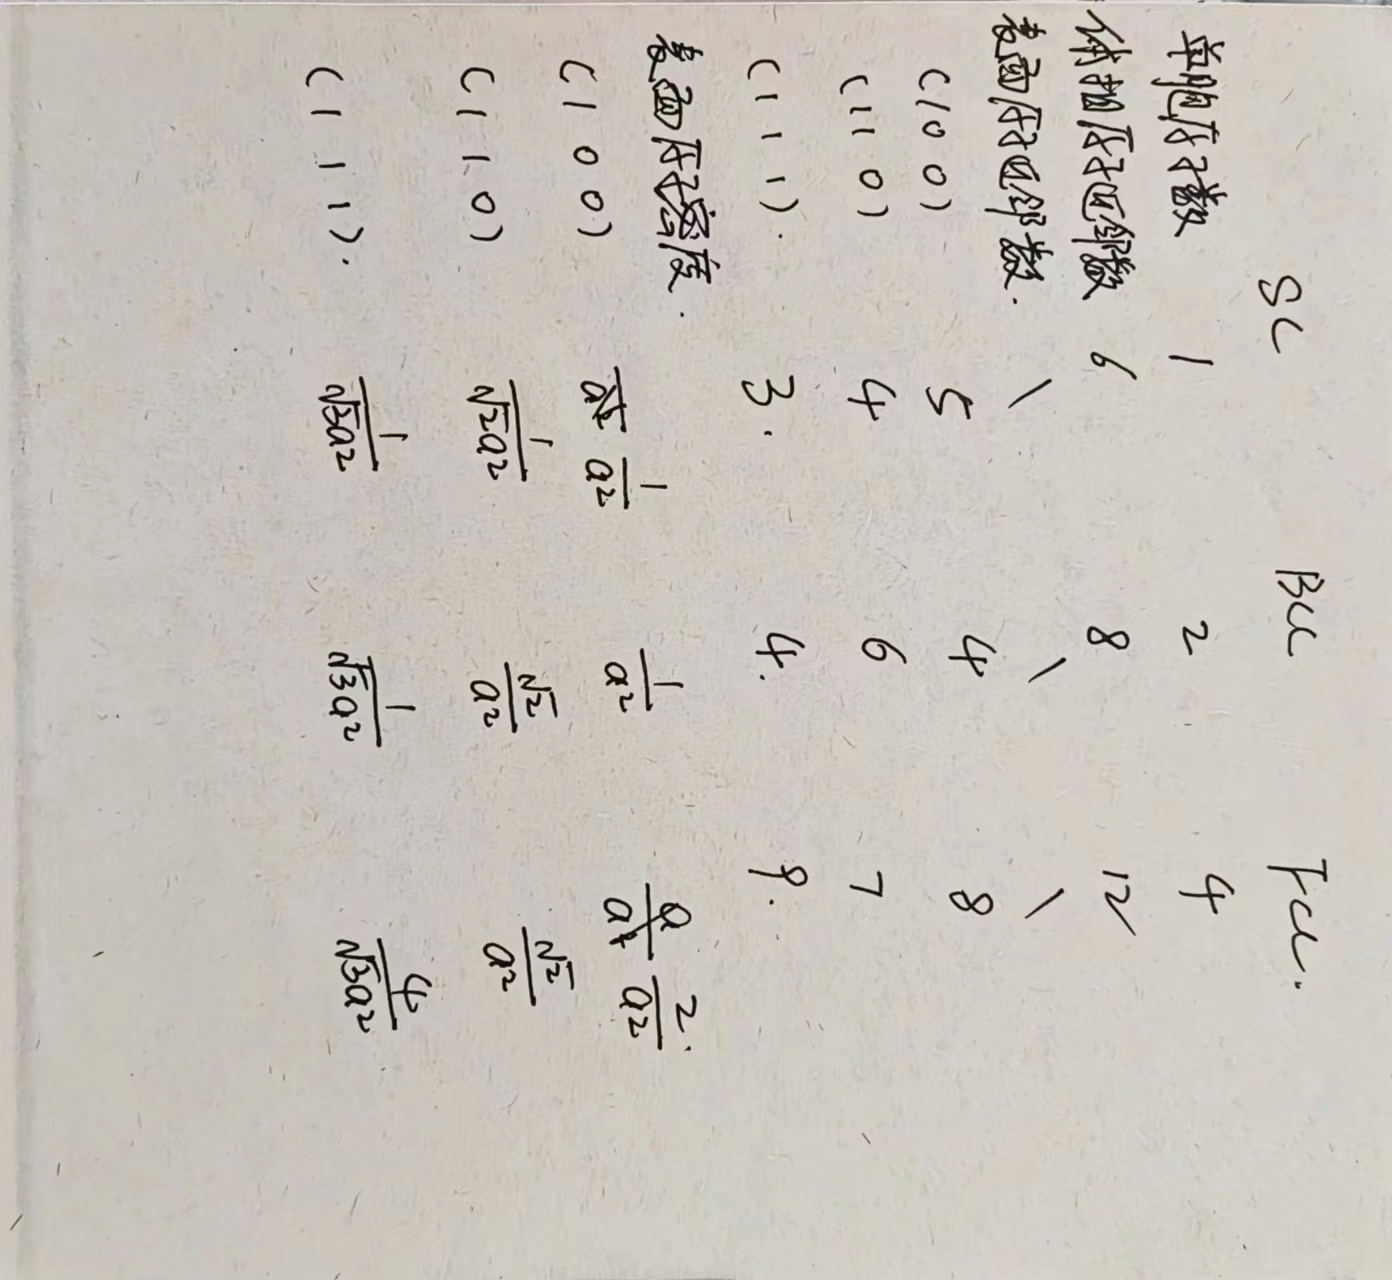 SC BCC FCC.
单胞原子数 1 2 4
体相原子近邻数 6 8 12
表面原子近邻数. \ \ \
(100) 5 4 8
(110) 4 6 7
(111). 3. 4. 9.
表面原子密度.
(100) 1/a² 1/a² 2/a²
(110) 1/√2a² √2/a² √2/a²
(111). 1/√3a² 1/√3a² 4/√3a²